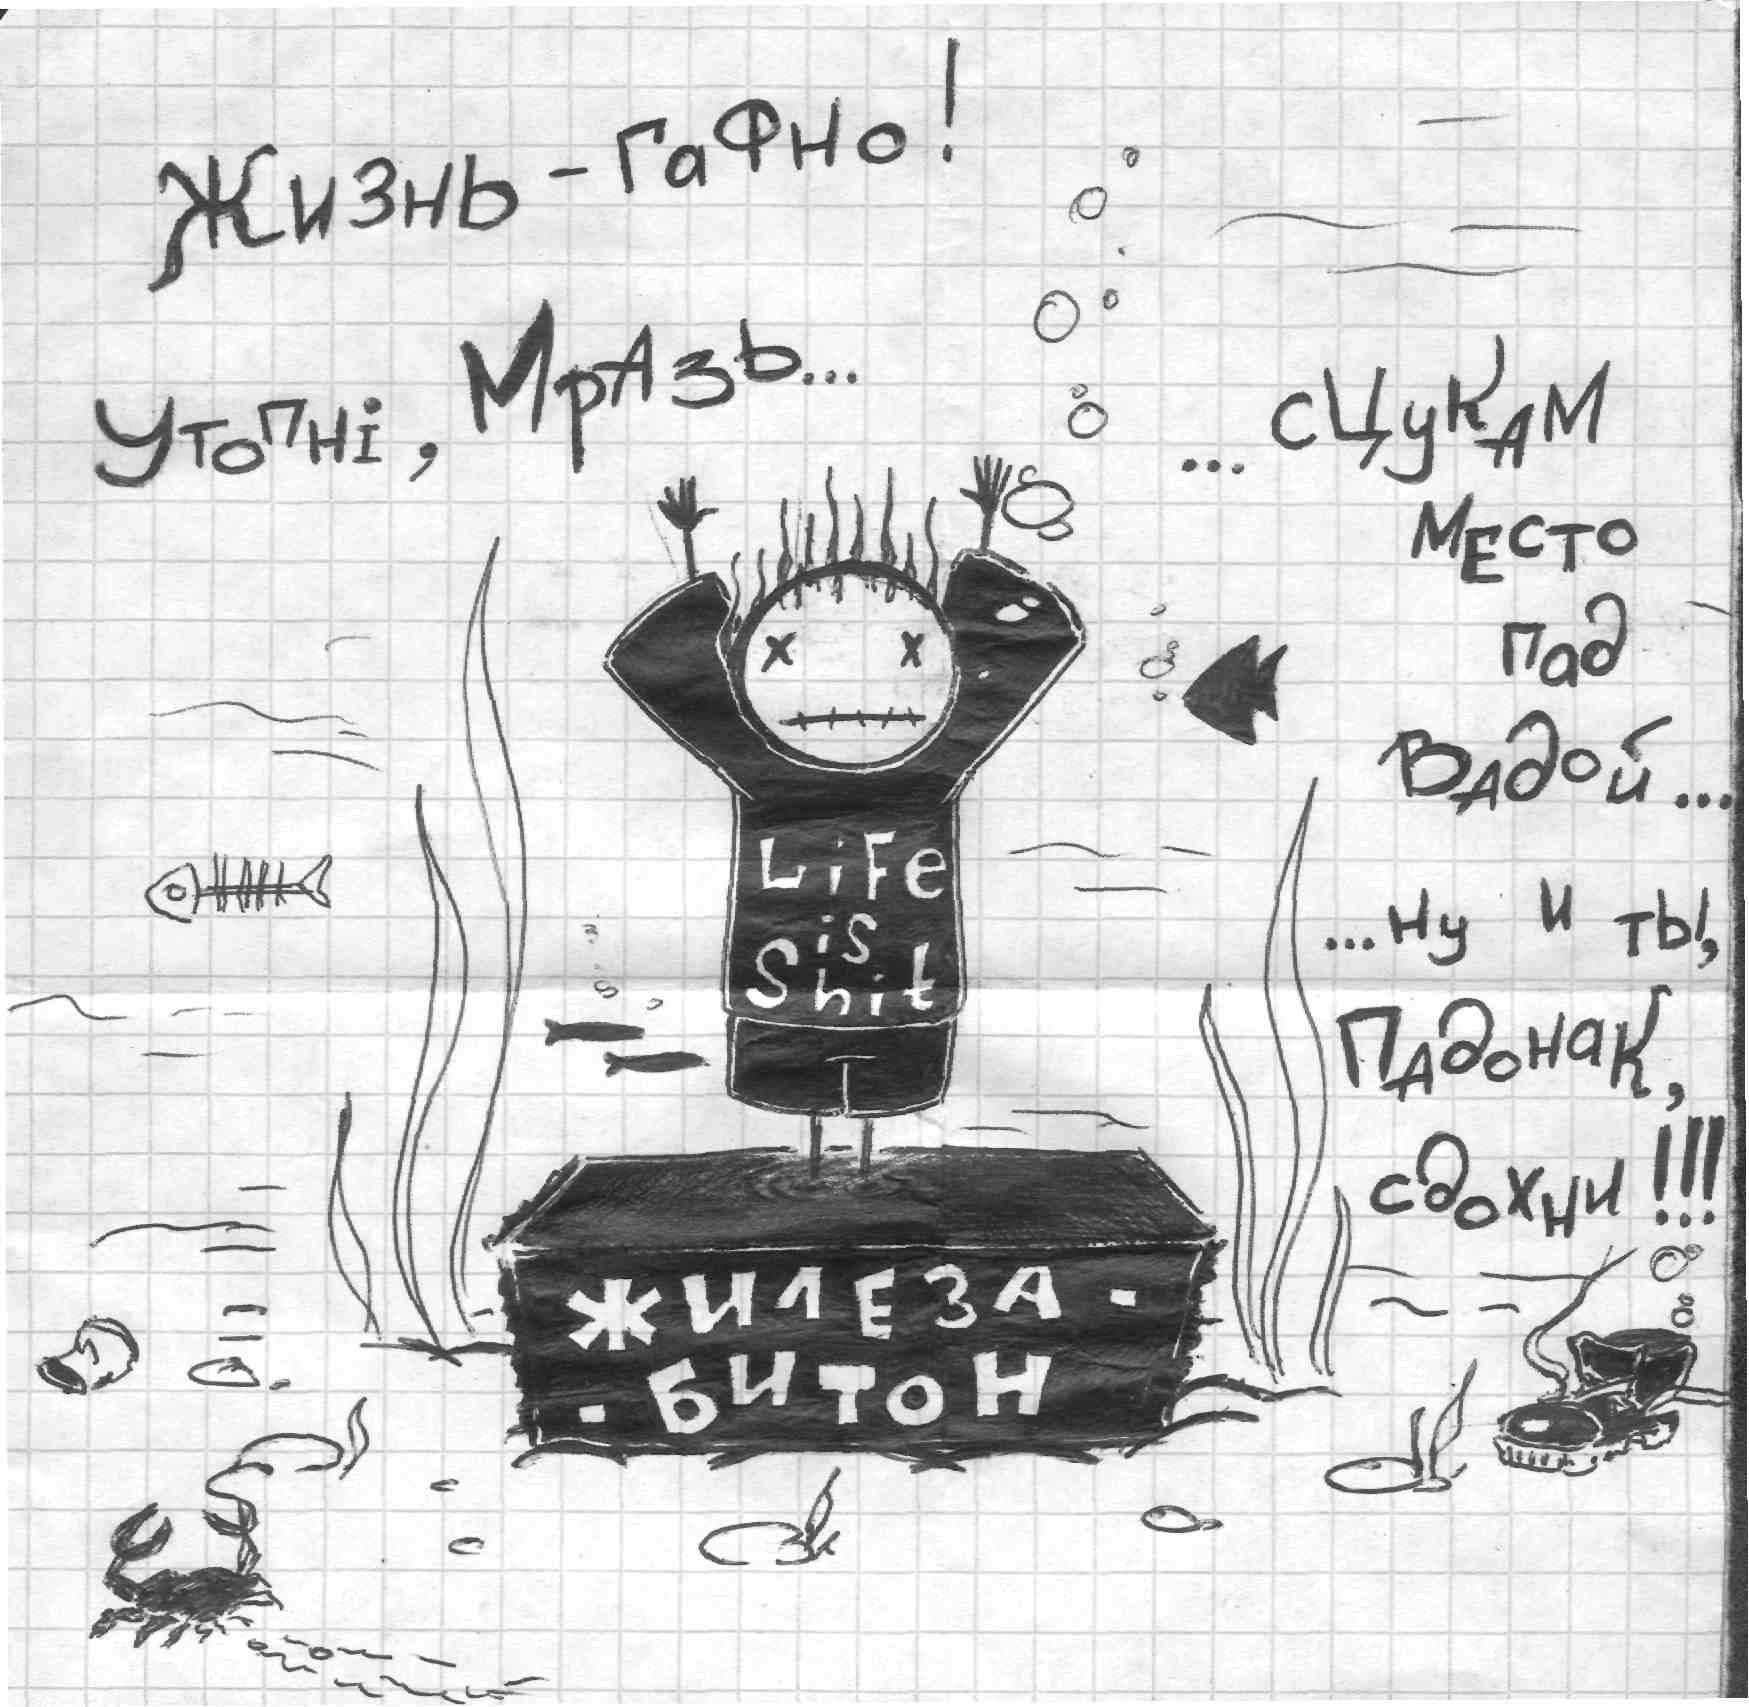 Жизнь - гафно!
Утопні, Мразь...
...сЦукам
место
пад
вадой...
...ну и ты,
Падонак,
сдохни!!!
Life
is
Shit
жилеза-
-битон